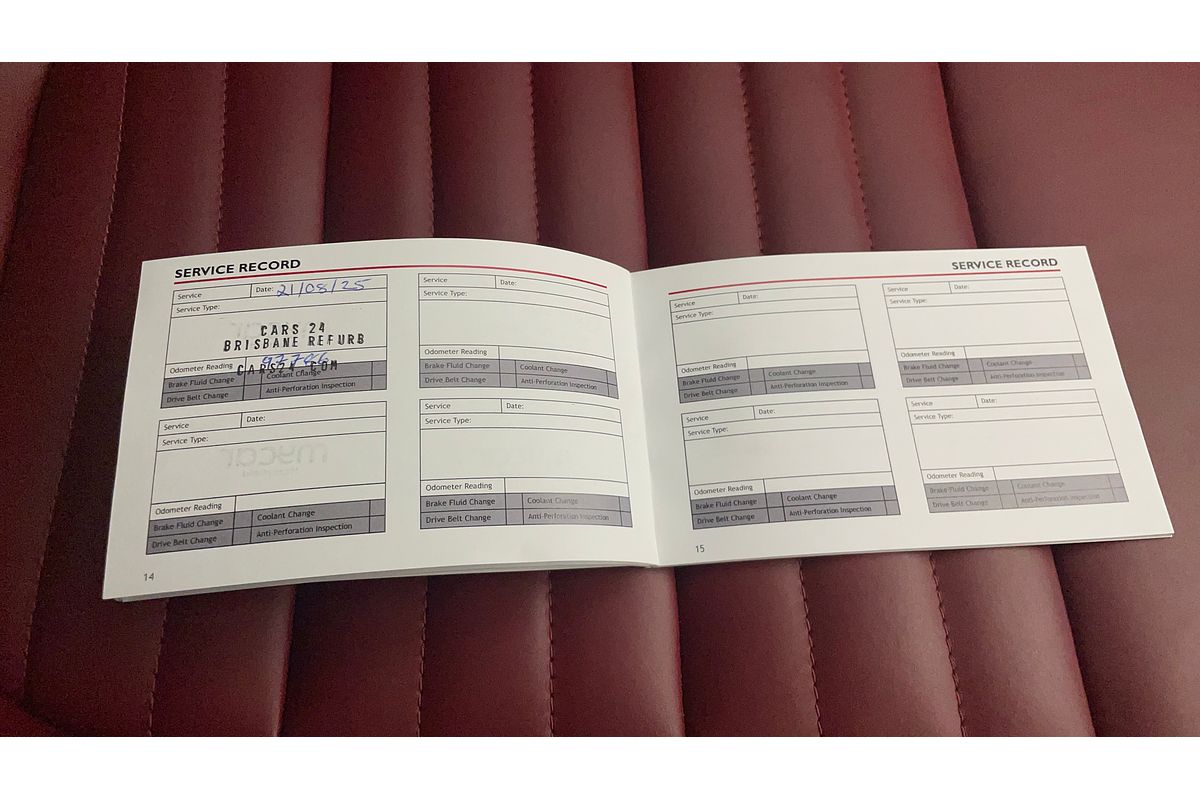 SERVICE RECORD
Service Date: 21/08/25
Service Type:
CARS 24
BRISBANE REFURB
Odometer Reading
CARS24.COM
Brake Fluid Change Coolant Change
Drive Belt Change Anti-Perforation Inspection
Service Date:
Service Type:
Odometer Reading
Brake Fluid Change Coolant Change
Drive Belt Change Anti-Perforation Inspection
Service Date:
Service Type:
Odometer Reading
Brake Fluid Change Coolant Change
Drive Belt Change Anti-Perforation Inspection
Service Date:
Service Type:
mycar
Odometer Reading
Brake Fluid Change Coolant Change
Drive Belt Change Anti-Perforation Inspection
14
SERVICE RECORD
Service Date:
Service Type:
Odometer Reading
Brake Fluid Change Coolant Change
Drive Belt Change Anti-Perforation Inspection
Service Date:
Service Type:
Odometer Reading
Brake Fluid Change Coolant Change
Drive Belt Change Anti-Perforation Inspection
Service Date:
Service Type:
Odometer Reading
Brake Fluid Change Coolant Change
Drive Belt Change Anti-Perforation Inspection
Service Date:
Service Type:
Odometer Reading
Brake Fluid Change Coolant Change
Drive Belt Change Anti-Perforation Inspection
15